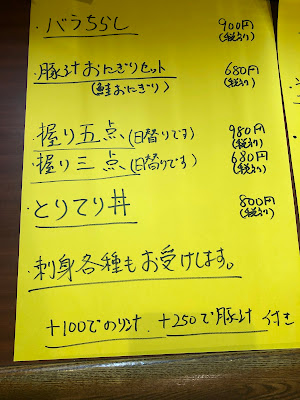 ・バラちらし 900円
(税込)
・豚汁おにぎりセット 680円
(鮭おにぎり) (税込)
・握り五点(日替りです) 980円
(税込)
・握り三点(日替りです) 680円
(税込)
・とりてり丼 800円
(税込)
・刺身各種もお受けします。
+100でのり汁、+250で豚汁付き